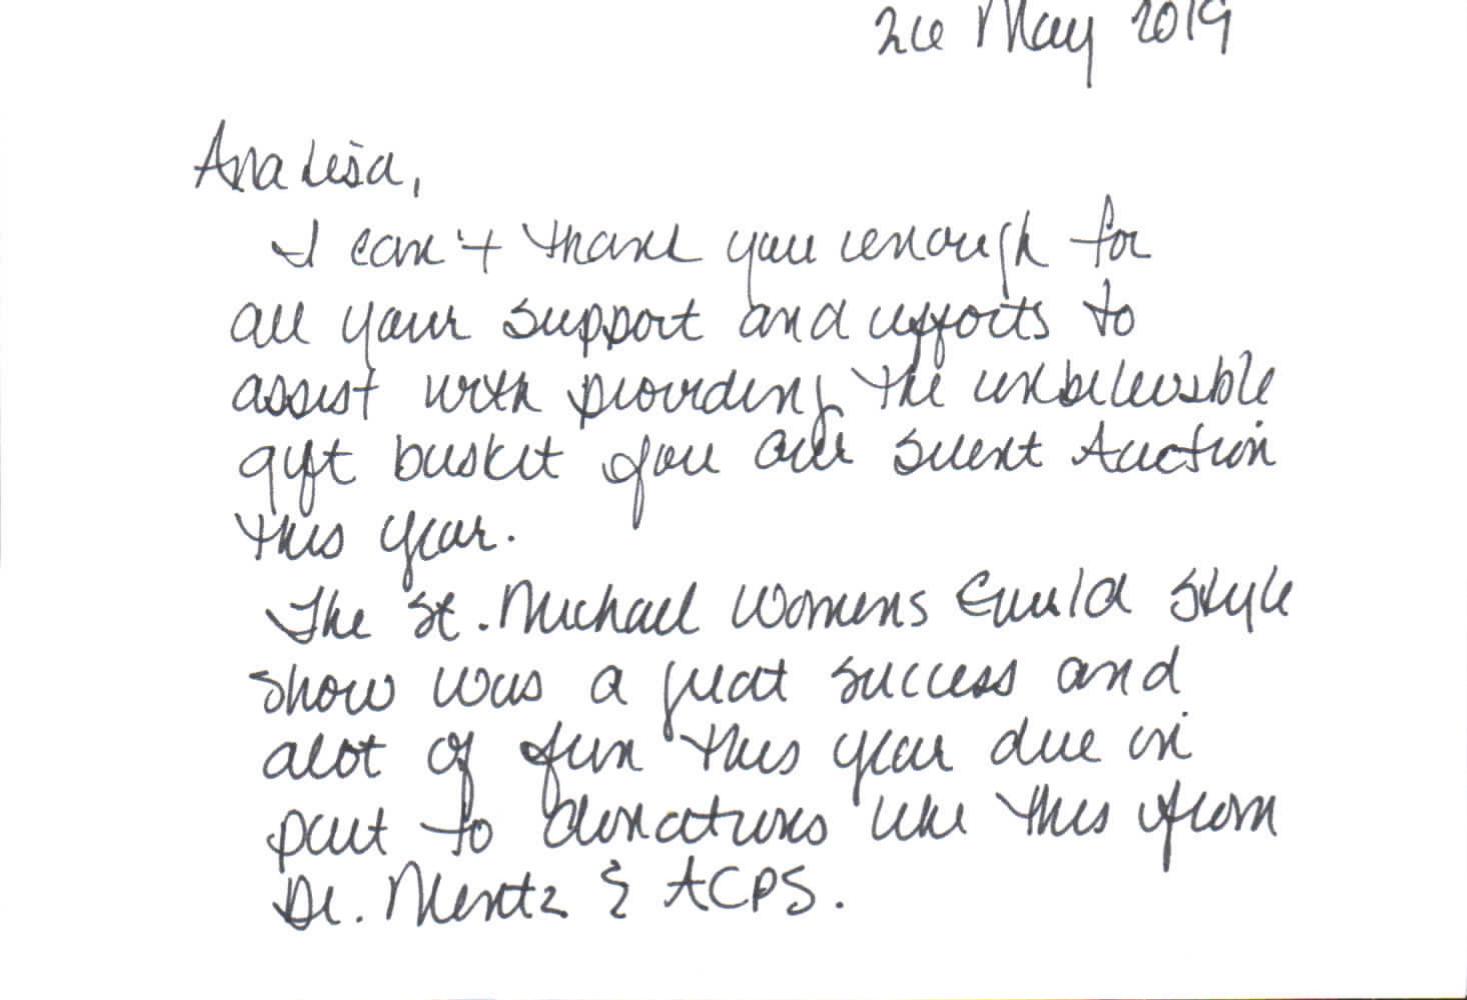 26 May 2019
Ana Lisa,
I can't thank you enough for
all your support and efforts to
assist with providing the unbelievable
gift basket for our Silent Auction
this year.
The St. Michael Womens Guild Style
show was a great success and
alot of fun this year due in
part to donations like this from
Dr. Mentz & ACPS.